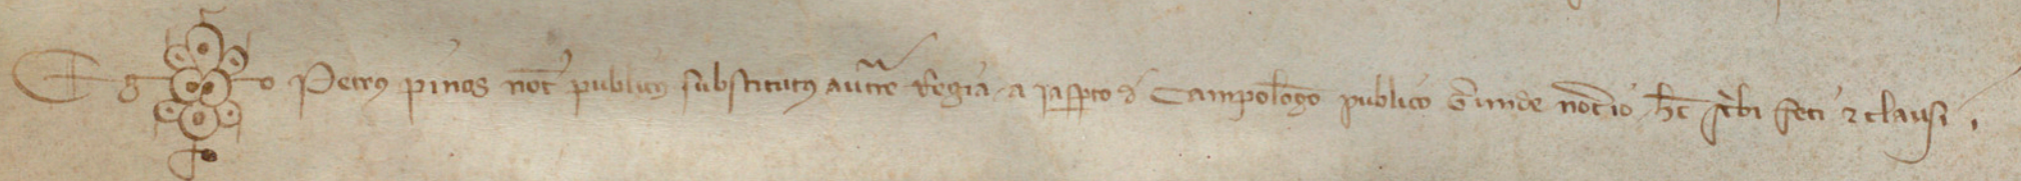 Ego Petrus pinos not publicus substitutus auctte Regia a Jaspto d Campolongo publico Gerunde notario hec scbi feci ⁊ clausi .